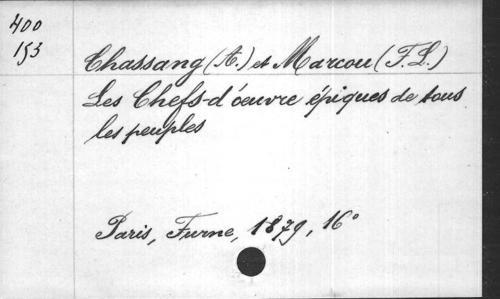 400
153
Chassang (A.) et Marcou (F.L.)
Les Chefs-d'œuvre épiques de tous
les peuples
Paris, Furne, 1879, 16°